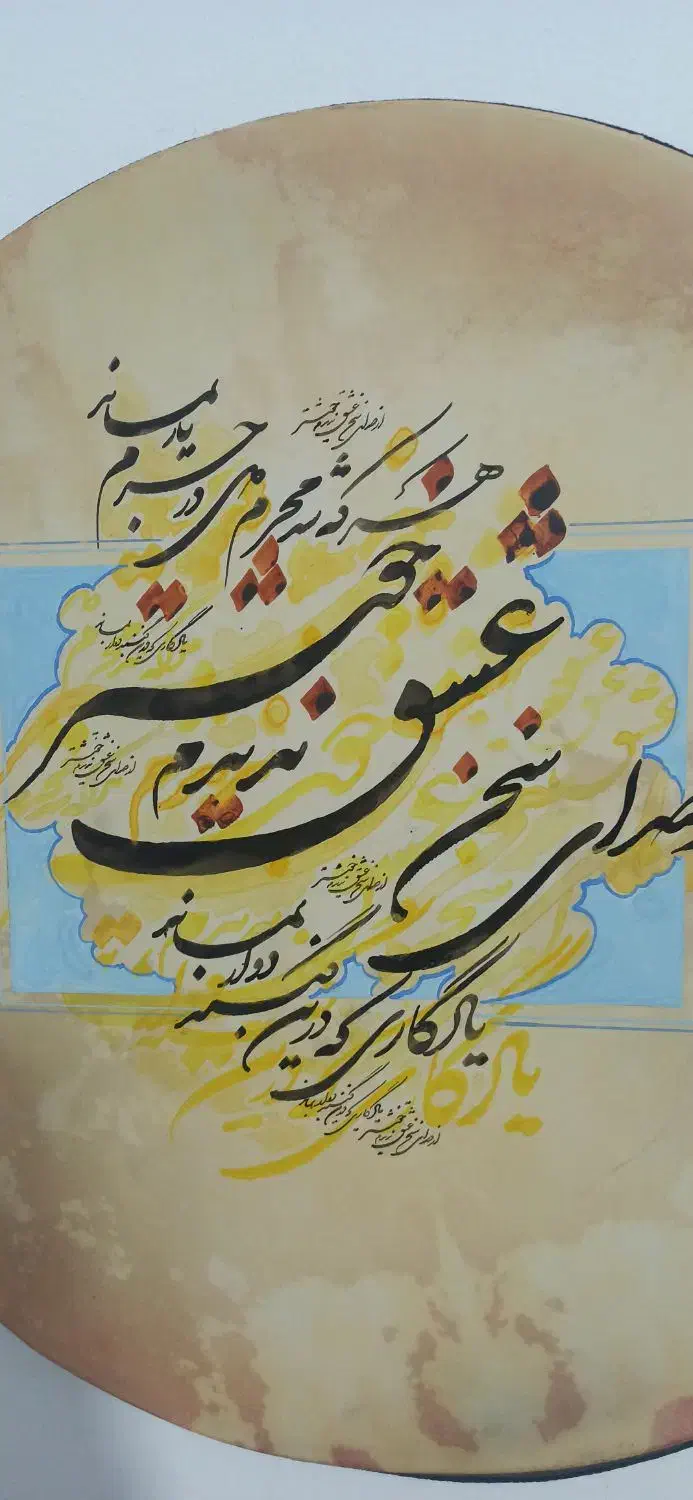 از صدای سخن عشق ندیدم خوشتر
هر که شد محرم دل در حرم یار بماند
یادگاری که درین گنبد دوار بماند
صدای سخن عشق ندیدم خوشتر
از صدای سخن عشق ندیدم خوشتر
از صدای سخن عشق ندیدم خوشتر
یادگاری که درین گنبد دوار بماند
یادگاری که درین گنبد دوار بماند
از صدای سخن عشق ندیدم خوشتر